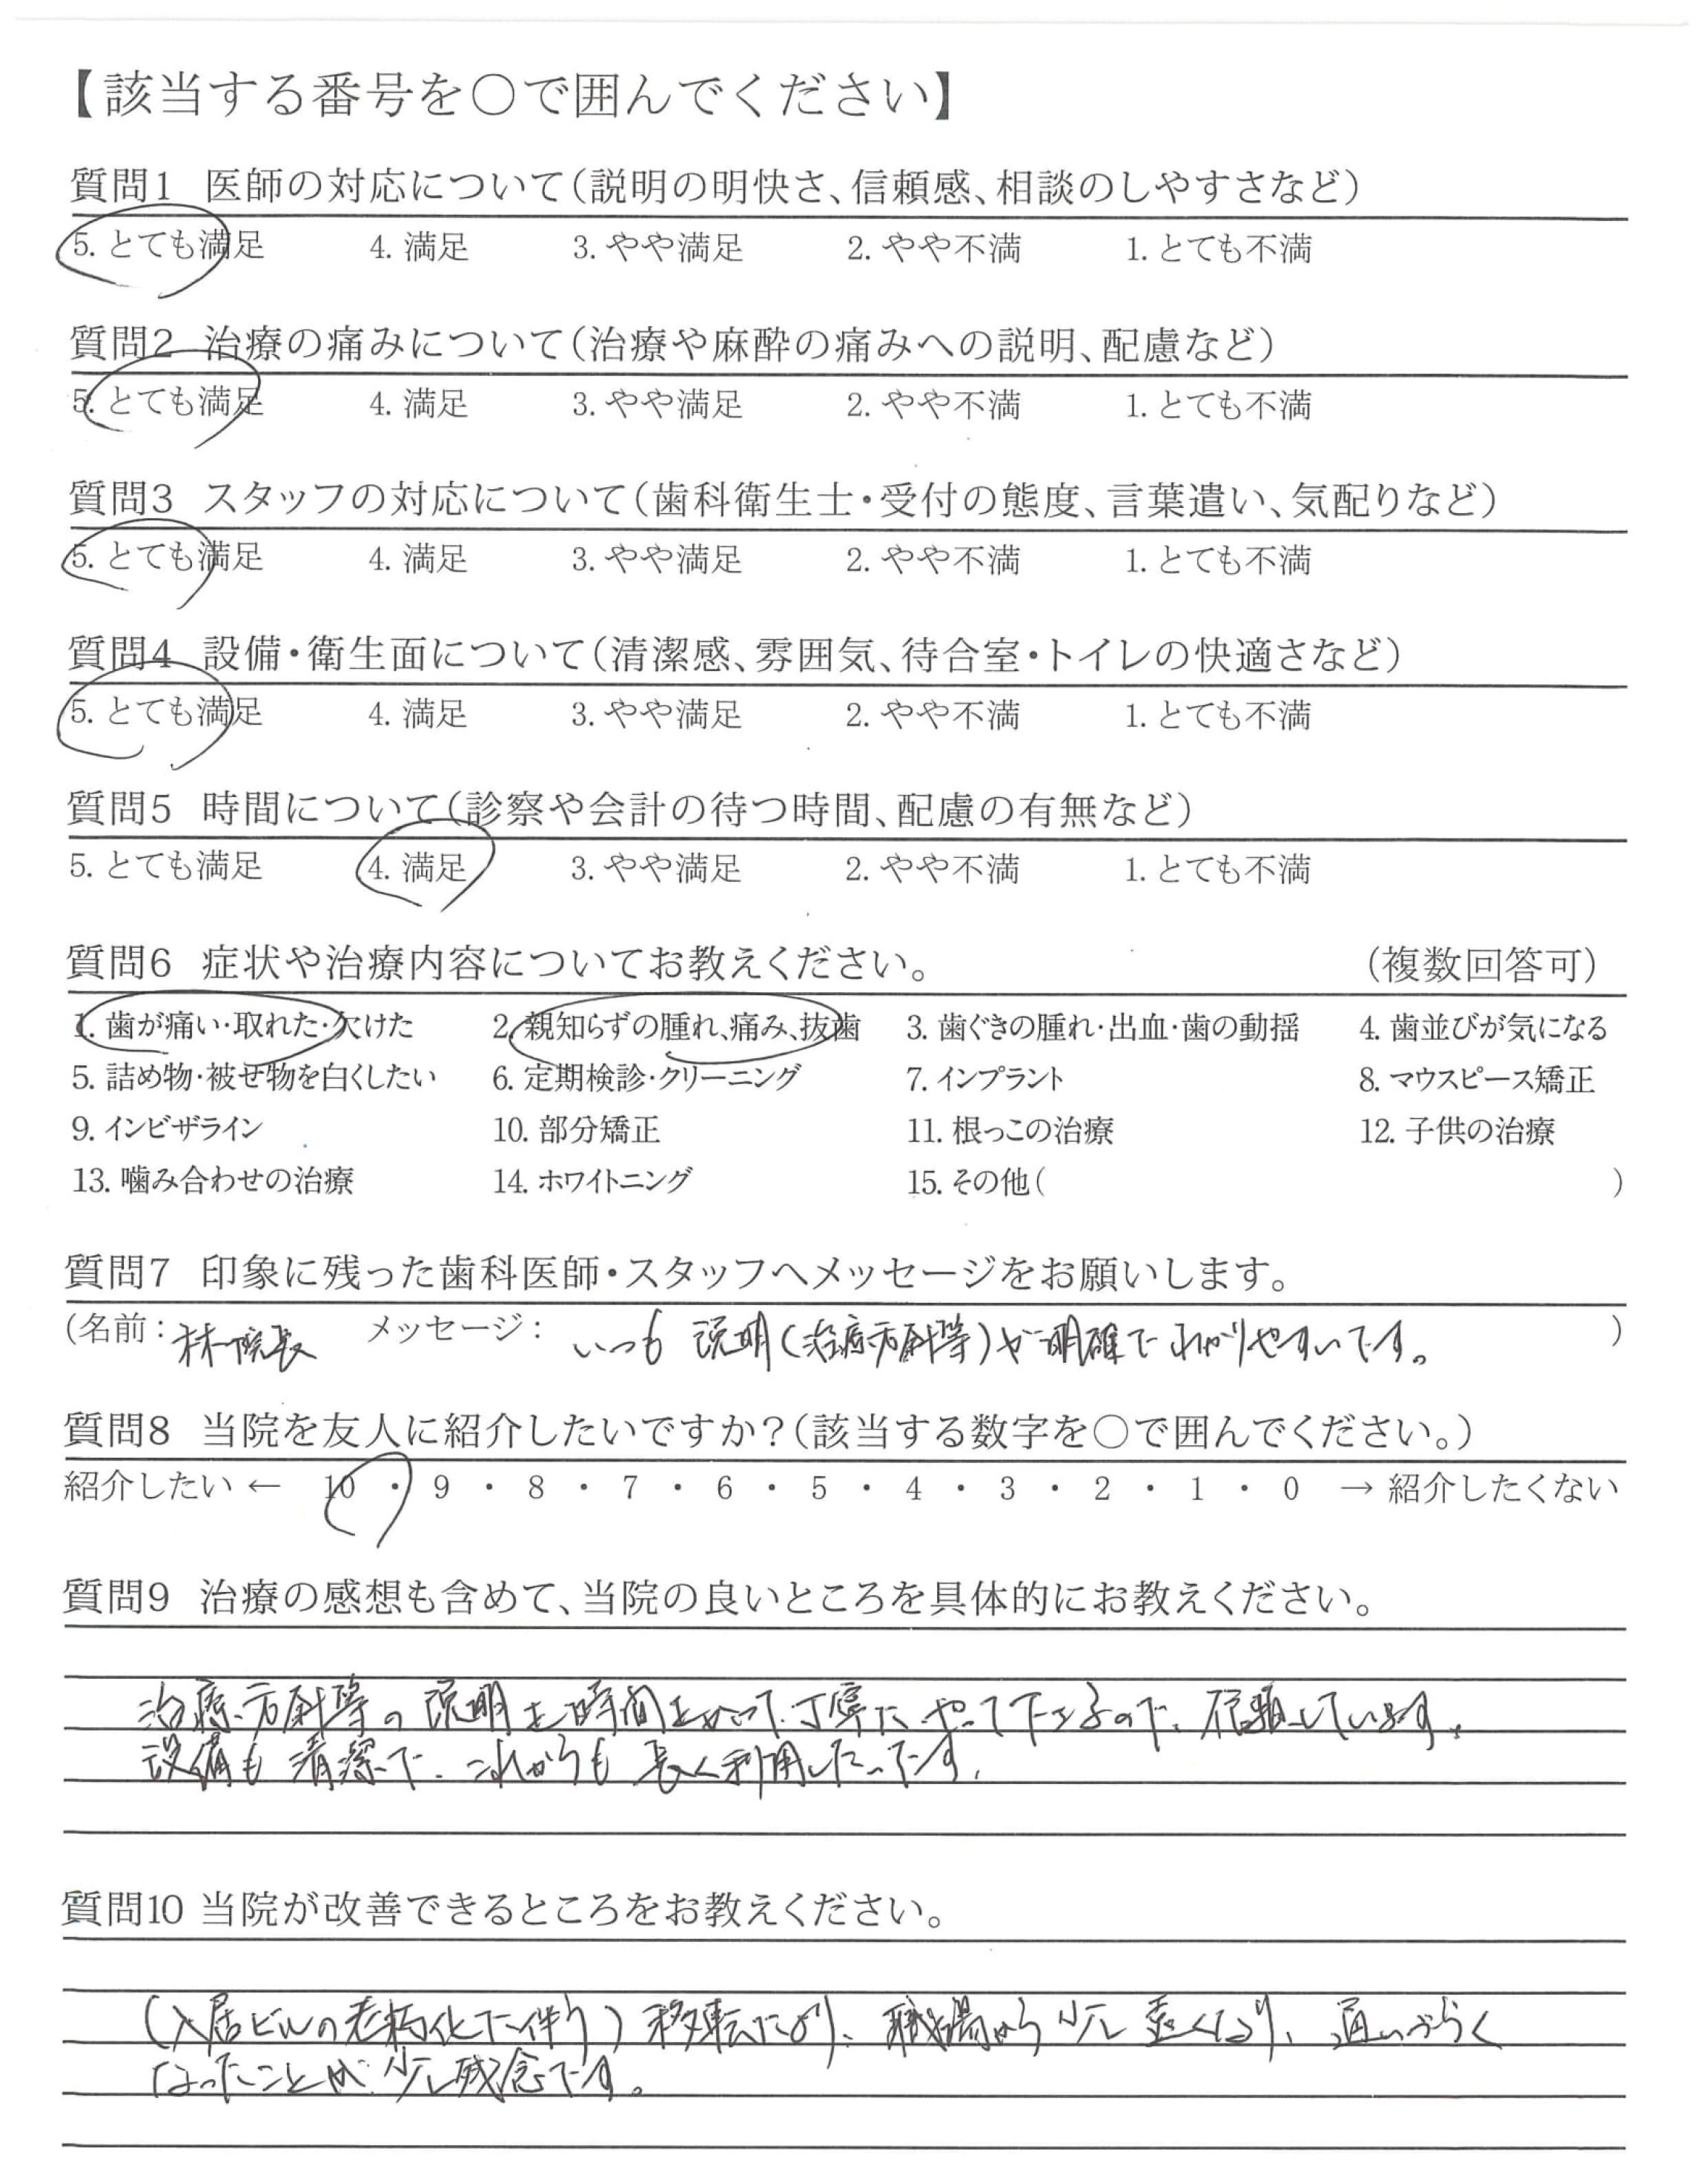 【該当する番号を○で囲んでください】
質問1 医師の対応について(説明の明快さ、信頼感、相談のしやすさなど)
5. とても満足 4. 満足 3. やや満足 2. やや不満 1. とても不満
質問2 治療の痛みについて(治療や麻酔の痛みへの説明、配慮など)
5. とても満足 4. 満足 3. やや満足 2. やや不満 1. とても不満
質問3 スタッフの対応について(歯科衛生士・受付の態度、言葉遣い、気配りなど)
5. とても満足 4. 満足 3. やや満足 2. やや不満 1. とても不満
質問4 設備・衛生面について(清潔感、雰囲気、待合室・トイレの快適さなど)
5. とても満足 4. 満足 3. やや満足 2. やや不満 1. とても不満
質問5 時間について(診察や会計の待つ時間、配慮の有無など)
5. とても満足 4. 満足 3. やや満足 2. やや不満 1. とても不満
質問6 症状や治療内容についてお教えください。 (複数回答可)
1. 歯が痛い・取れた・欠けた 2. 親知らずの腫れ、痛み、抜歯 3. 歯ぐきの腫れ・出血・歯の動揺 4. 歯並びが気になる
5. 詰め物・被せ物を白くしたい 6. 定期検診・クリーニング 7. インプラント 8. マウスピース矯正
9. インビザライン 10. 部分矯正 11. 根っこの治療 12. 子供の治療
13. 噛み合わせの治療 14. ホワイトニング 15. その他( )
質問7 印象に残った歯科医師・スタッフへメッセージをお願いします。
(名前: 林院長 メッセージ: いつも 説明(治療方針等)が明確でわかりやすいです。 )
質問8 当院を友人に紹介したいですか?(該当する数字を○で囲んでください。)
紹介したい ← 10 ・ 9 ・ 8 ・ 7 ・ 6 ・ 5 ・ 4 ・ 3 ・ 2 ・ 1 ・ 0 → 紹介したくない
質問9 治療の感想も含めて、当院の良いところを具体的にお教えください。
治療方針等の説明を時間をかけて丁寧にやって下さるので、信頼しています。
設備も清潔で、これからも長く利用したいです。
質問10 当院が改善できるところをお教えください。
(入居ビルの老朽化に伴う)移転により、職場から少し遠くなり、通いづらく
なったことが少し残念です。